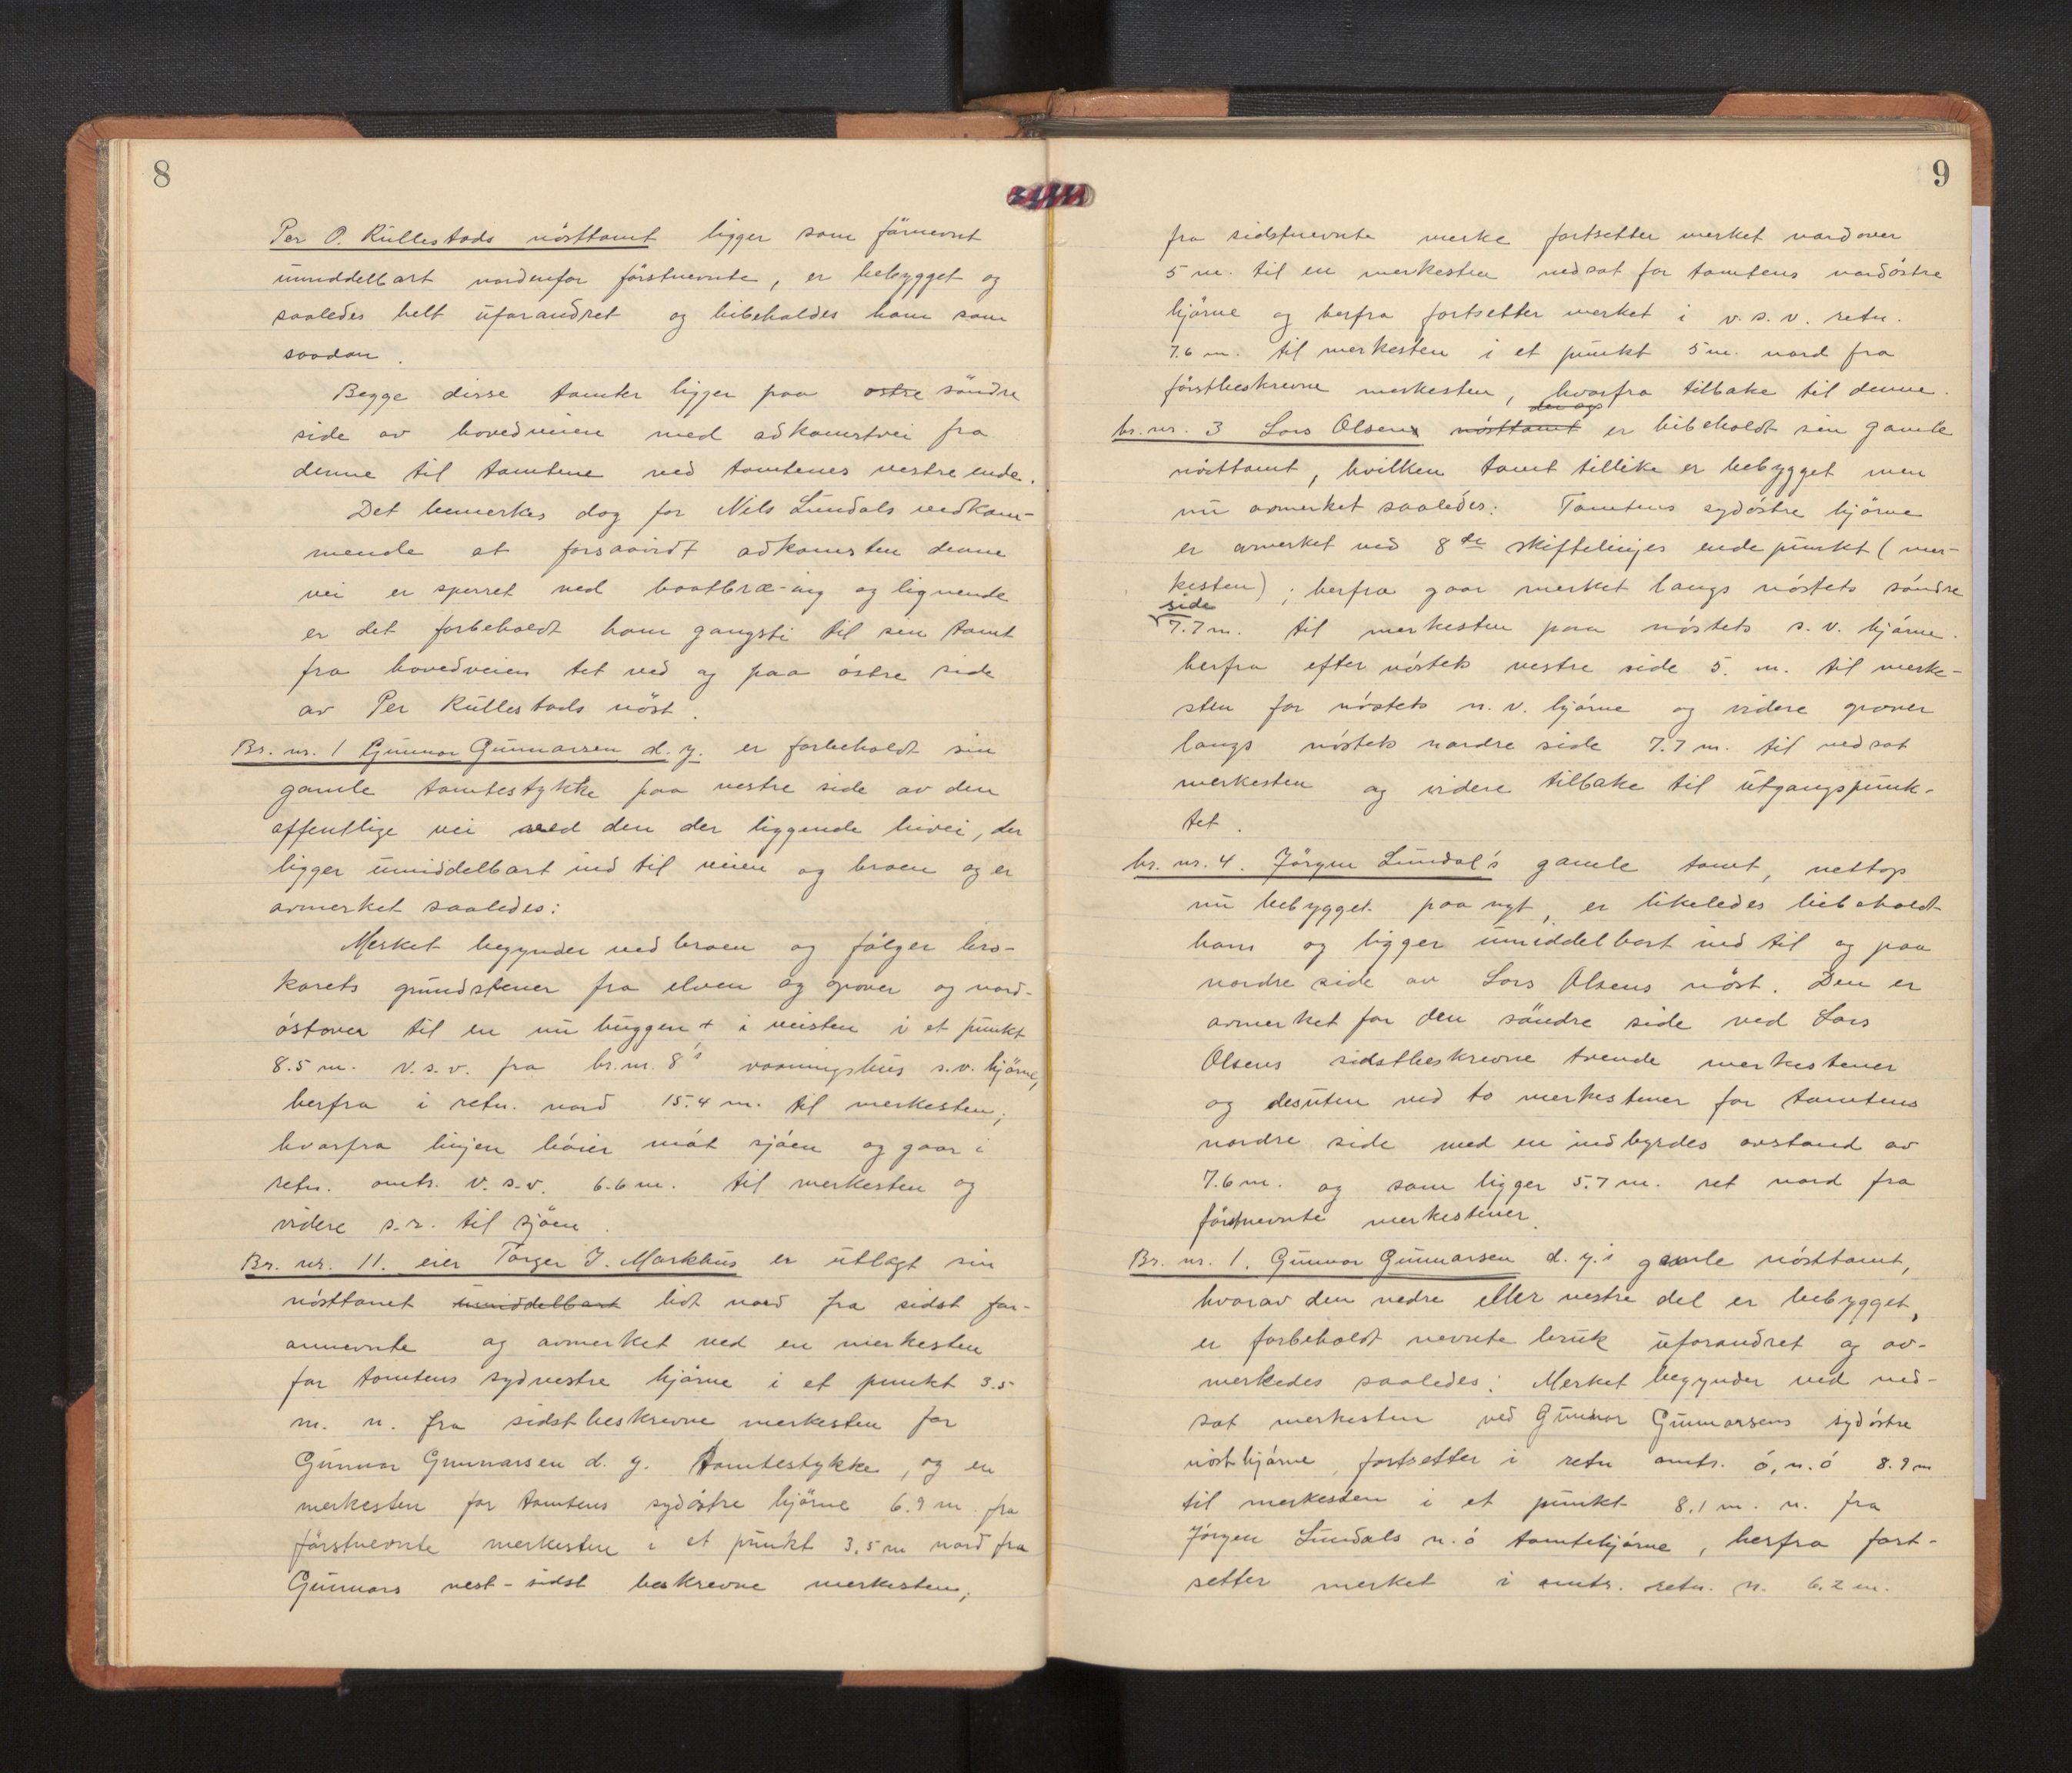 8
Per O. Kullestads nösttomt ligger som förnevnt
umiddelbart nordenfor förstnevnte, er bebygget og
saaledes helt uforandret og bibeholdes ham som
saadan.
Begge disse tomter ligger paa östre söndre
side av hovedveien med adkomstvei fra
denne til tomtene ved tomtenes vestre ende.
Det bemerkes dog for Nils Lundals vedkom-
mende at forsaavidt adkomsten denne
vei er sperret ved baatbræ-ing og lignende
er det forbeholdt ham gangsti til sin tomt
fra hovedveien tet ved og paa östre side
av Per Kullestads nöst.
Br. nr. 1 Gunnar Gunnarsen d. y. er forbeholdt sin
gamle tomtestykke paa vestre side av den
offentlige vei ved den der liggende bivei, der
ligger umiddelbart ind til veien og broen og er
avmerket saaledes:
Merket begynder ved broen og fölger bro-
karets grundstener fra elven og opover og nord-
östover til en nu huggen + i veisten i et punkt
8.5 m. v.s.v. fra br.nr. 8's vaaningshus s.v. hjörne,
herfra i retn. nord 15.4 m. til merkesten,
hvorfra linjen böier mot sjöen og gaar i
retn. omtr. v.s.v. 6.6 m. til merkesten og
videre s.r. til sjöen.
Br. nr. 11. eier Torger J. Markhus er utlagt sin
nösttomt umiddelbart lidt nord fra sidst for-
annevnte og avmerket ved en merkesten
for tomtens sydvestre hjörne i et punkt 3.5
m. n. fra sidst beskrevne merkesten for
Gunnar Gunnarsen d. y. tomtestykke, og en
merkesten for tomtens sydöstre hjörne 6.9 m. fra
förstnevnte merkesten i et punkt 3.5 m nord fra
Gunnars nest-sidst beskrevne merkesten,
9
fra sidstnevnte merke fortsetter merket nordover
5 m. til en merkesten nedsat for tomtens nordöstre
hjörne og herfra fortsetter merket i v.s.v. retn.
7.6 m. til merkesten i et punkt 5 m. nord fra
förstbeskrevne merkesten, hvorfra tilbake til denne.
br. nr. 3 Lars Olsens nösttomt er bibeholdt sin gamle
nösttomt, hvilken tomt tillike er bebygget men
nu avmerket saaledes: Tomtens sydöstre hjörne
er avmerket ved 8de skiftelinjes endepunkt (mer-
kesten); herfra gaar merket langs nöstets söndre
side
7.7 m. til merkesten paa nöstets s.v. hjörne.
herfra efter nöstets vestre side 5. m. til merke-
sten for nöstets n.v. hjörne og videre opover
langs nöstets nordre side 7.7 m. til nedsat
merkesten og videre tilbake til utgangspunk-
tet.
br. nr. 4. Jörgen Lundal's gamle tomt, nettop
nu bebygget paa nyt, er likeledes bibeholdt
ham og ligger umiddelbart ind til og paa
nordre side av Lars Olsens nöst. Den er
avmerket for den söndre side ved Lars
Olsens sidstbeskrevne tvende merkestener
og desuten ved to merkestener for tomtens
nordre side med en indbyrdes avstand av
7.6 m. og som ligger 5.7 m. ret nord fra
förstnevnte merkestener.
Br. nr. 1. Gunnar Gunnarsen d. y.s gamle nösttomt,
hvorav den nedre eller vestre del er bebygget,
er forbeholdt nevnte bruk uforandret og av-
merkedes saaledes: Merket begynder ved ned-
sat merkesten ved Gunnar Gunnarsens sydöstre
nösthjörne, fortsetter i retn omtr. ö.n.ö 8.9 m
til merkesten i et punkt 8.1 m. n. fra
Jörgen Lundals n.ö tomtehjörne, herfra fort-
setter merket i omtr. retn. n. 6.2 m.